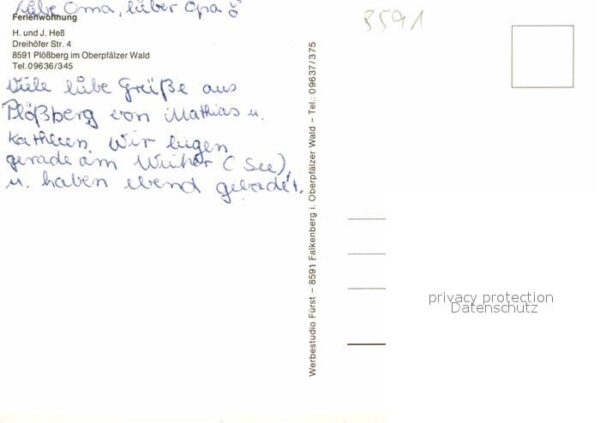 Liebe Oma, lieber Opa!
Ferienwohnung
H. und J. Heß
Dreihöfer Str. 4
8591 Plößberg im Oberpfälzer Wald
Tel. 09636/345
Viele liebe Grüße aus
Plößberg von Mathias u.
Kathleen. Wir liegen
gerade am Weiher (See),
u. haben ebend gebadet.
8591
Werbestudio Fürst – 8591 Falkenberg i. Oberpfälzer Wald – Tel. 09637/375
privacy protection
Datenschutz